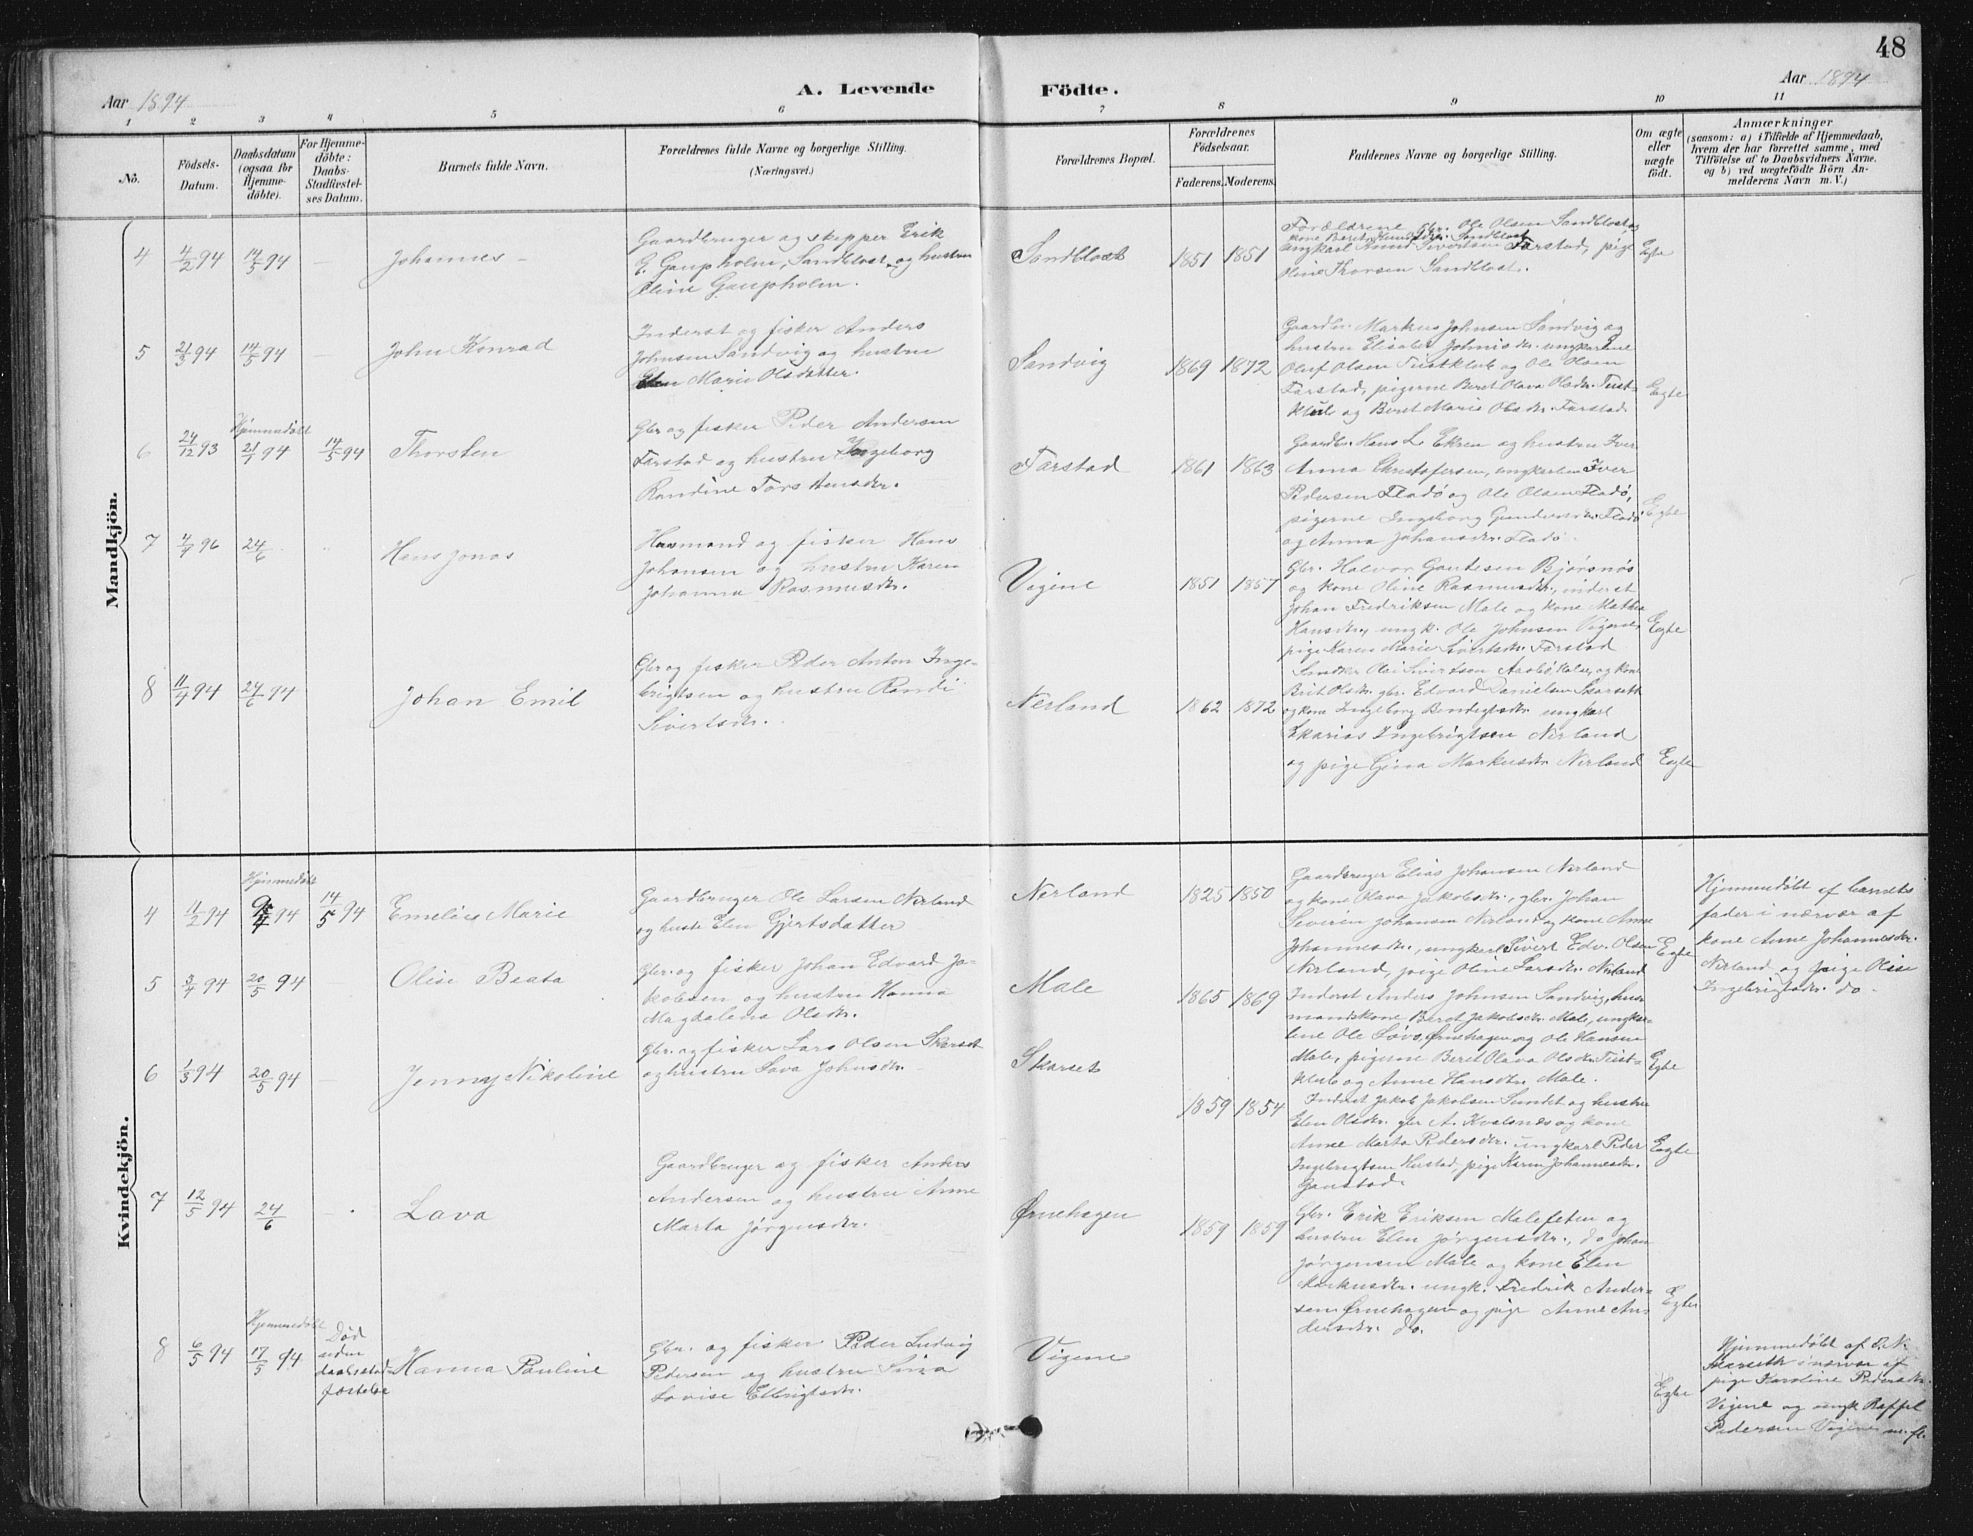 48
Aar 1894
A. Levende
Födte.
Aar 1894
1 2 3 4 5 6 7 8 9 10 11
No.
Födsels-
Datum.
Daabsdatum
(ogsaa for
Hjemme-
döbte).
For Hjemme-
döbte:
Daabs-
Stadfæstel-
ses Datum.
Barnets fulde Navn.
Forældrenes fulde Navne og borgerlige Stilling.
(Næringsvei.)
Forældrenes Bopæl.
Forældrenes
Födselsaar.
Faderens. Moderens.
Faddernes Navne og borgerlige Stilling.
Om ægte
eller
uægte
födt.
Anmærkninger
(saasom: a) i Tilfælde af Hjemmedaab,
hvem der har forrettet samme, med
Tilföielse af to Daabsvidners Navne,
og b) ved uægtefödte Börn An-
melderens Navn m. V.)
Mandkjön.
4
4/2 94
14/5 94
Johannes
Gaardbruger og skipper Erik
E. Gaupholm, Sandblost og hustru
Oline Gaupholm.
Sandblost
1851 1851
Forældrene gbr. Ole Olsen Sandblost og
kone Beret Sandblost
ungkarl Knud Sivertsen Farstad, pige
Oline Thorsen Sandblost.
Egte
5
21/3 94
14/5 94
John Konrad
Inderst og fisker Anders
Johnsen Sandvig og hustru
Elen Marie Olsdatter.
Sandvig
1869 1872
Gaardbr. Markus Johnsen Sandvig og
hustru Elisabet Johnsdtr. ungkarlene
Oluf Olsen Tustklub og Ole Olsen
Farstad, pigerne Beret Olava Olsdtr. Tust-
klub og Beret Marie Olsdtr. Farstad
Egte
6
24/12 93
Hjemmedöbt
21/1 94
14/5 94
Thorsten
Gbr og fisker Peder Andersen
Farstad og hustru Ingeborg
Randine Torstensdtr.
Farstad
1861 1863
Gaardbr. Hans L. Ekren og hustru
Anna Christofersen, ungkarlen Iver
Pedersen Fladö og Ole Olsen Fladö,
pigerne Ingeborg Gundersdtr. Fladö
og Anna Johansdtr. Fladö.
Egte
7
96
24/6
Hans Jonas
Husmand og fisker Hans
Johansen og hustru Karen
Johanna Rasmusdtr.
Vigene
1851 1857
Gbr. Halvor Gautesen Bjørsnøs
og kone Oline Rasmusdtr, inderst
Johan Fredriksen Male og kone Mathea
Hansdtr, ungk. Ole Johnsen Vigene,
pige Karen Marie Sivertsdtr. Farstad
Egte
8
94
24/6 94
Johan Emil
Gbr og fisker Peder Anton Inge-
brigtsen og hustru Randi
Sivertsdtr.
Nerland
1862 1872
Smed Ole Sivertsen og kone
Brit Olsdtr. gbr. Edvard Danielsen Skarseth
og kone Ingeborg Bendigtsdtr ungkarl
Ekarias Ingebrigtsen Nerland
og pige Gina Markusdtr Nerland
Egte
Kvindekjön.
4
11/2 94
Hjemmedöbt
94
14/5 94
Emelie Marie
Gaardbruger Ole Larsen Nerland
og hustr Elen Gjertsdatter
Nerland
1825 1850
Gaardbruger Elias Johansen Nerland
og kone Olava Jakobsdtr., gbr. Johan
Severin Johansen Nerland og kone Anne
Johannesdtr., ungkarl Sivert Edv. Olsen
Nerland, pige Oline Larsdtr. Nerland
Egte
Hjemmedöbt af barnets
fader i nærvær af
kone Anne Johannesdtr.
Nerland og pige Olise
Ingebrigtsdtr. do.
5
3/4 94
20/5 94
Olise Beata
Gbr. og fisker Johan Edvard Ja-
kobsen og hustru Hanna
Magdalena Olsdtr.
Male
1865 1869
Inderst Anders Johnsen Sandvig, hus-
mandskone Beret Jakobsdtr Male, ungkar-
lene Ole Ørnehagen og Ole Hansen
Male, pigerne Beret Olava Olsdtr. Tust-
klub og Anne Hansdtr. Male.
Egte
6
1/3 94
20/5 94
Jenny Nikoline
Gbr. og fisker Lars Olsen Skarset
og hustru Lava Johnsdtr.
Skarset
1859 1854
Inderst Jakob Jakobsen Sundet og hustru
Elen Olsdtr. gbr A. Kvalsnes og kone
Anne Marta Pedersdtr. ungkarl Peder
Ingebrigtsen Hustad, pige Karen Johannesdtr.
Gaustad.
Egte
7
12/5 94
24/6
Lava
Gaardbruger og fisker Anders
Andersen og hustru Anne
Marta Jørgensdtr.
Ørnehagen
1859 1859
Gbr. Erik Eriksen Malefeten og
hustru Elen Jørgensdtr., do Johan
Jørgensen Male og kone Elen
Markusdtr. ungk. Fredrik Ander-
sen Ørnehagen og pige Anne An-
dersdtr. do.
Egte
8
6/5 94
Hjemmedöbt
17/5 94
Død
uden
daabsstad-
fæstelse
Hanna Pauline
Gbr. og fisker Peder Ludvig
Pedersen og hustru Sina
Lovise Ellingsdtr.
Vigene
Egte
Hjemmedöbt af E. N.
Skarseth i nærvær af
pige Karoline Pedersdtr.
Vigene og ungk Raffel
Pedersen Vigene m. fl.